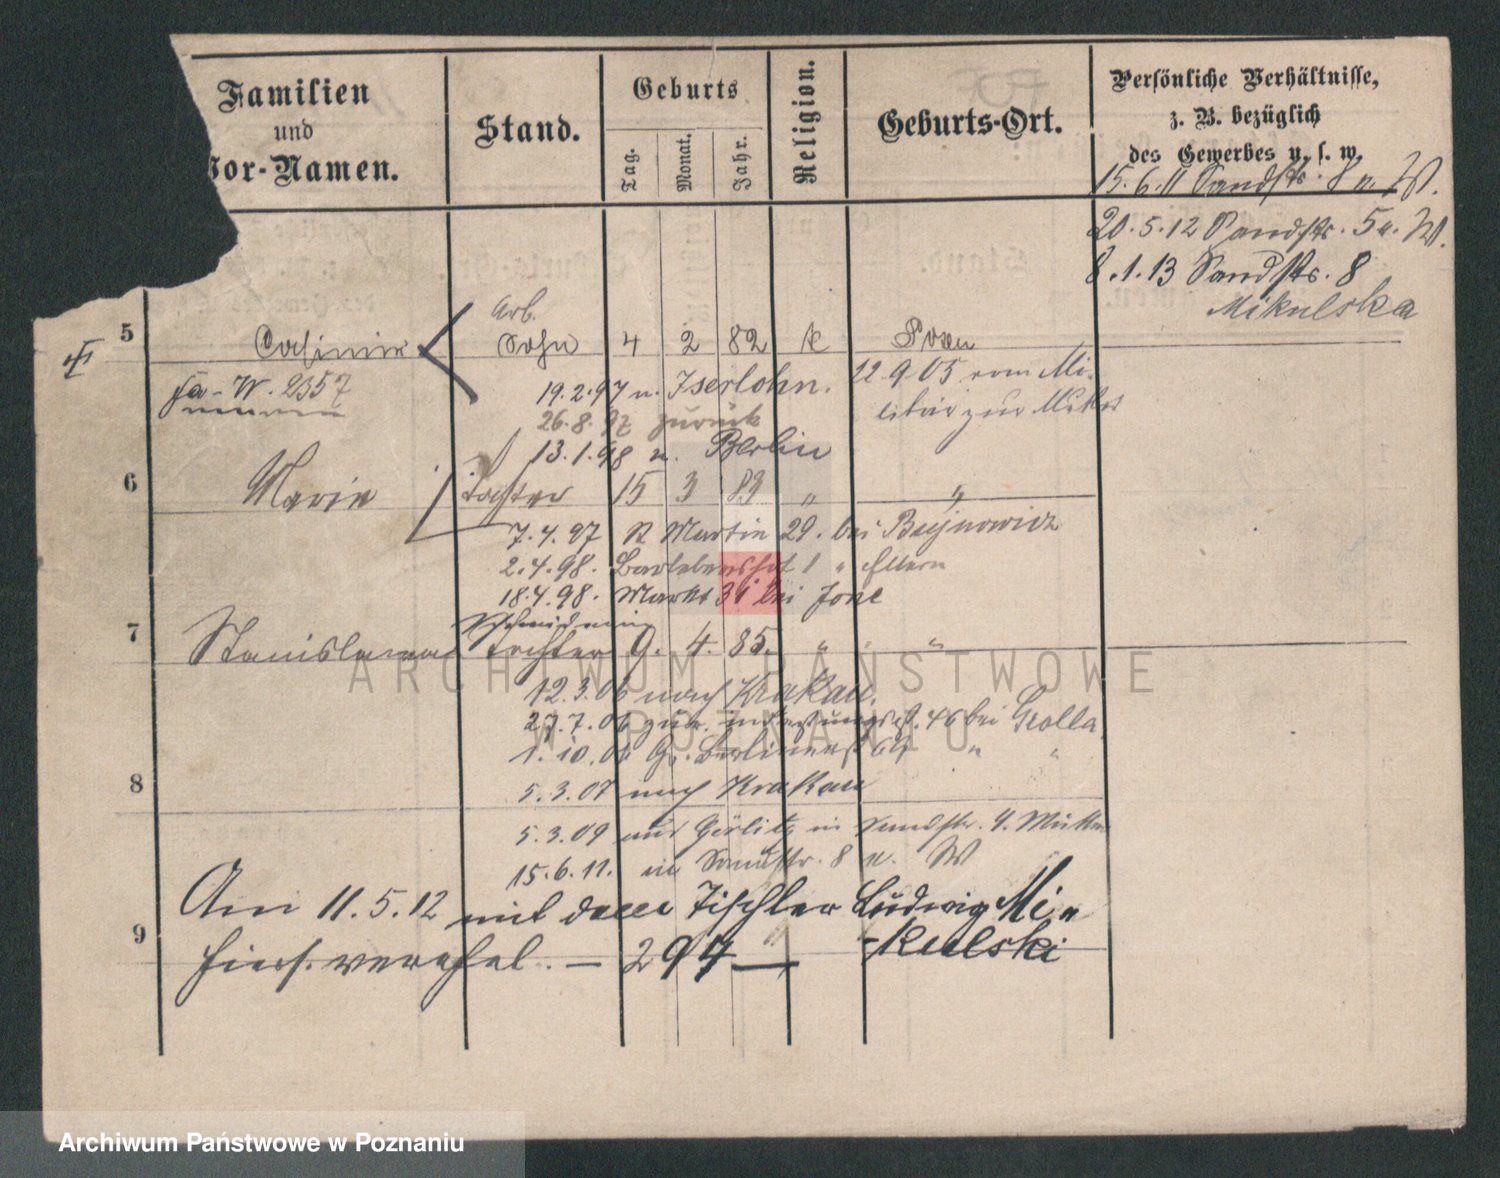 Familien
und
Vor-Namen.
Stand.
Geburts
Tag.
Monat.
Jahr.
Religion.
Geburts-Ort.
Persönliche Verhältnisse,
z. B. bezüglich
des Gewerbes u. s. w.
15.6.11 Sandstr. 8 n. W.
20.5.12 Sandstr. 5 n. W.
8.1.13 Sandstr. 8
Mikulska
5
Casimir
Arb.
Sohn 4 2 82 k Posen
W. 2357
19.2.97 n. Iserlohn.
22.9.05 vom Mi-
litär zur Mutter
26.8.97 zurück
13.1.98 n. Berlin
6
Marie
Tochter 15 3 83 " "
7.4.97 St Martin 29. bei Bujnowicz
2.4.98. 1 " Eltern
18.4.98. Markt bei
7
Stanislawa
Schneiderin
Tochter 9. 4. 85. " "
12.3.06 nach Krakau.
27.7.06 zur. 46 bei Grolla
1.10.06 Gr. Berlinerst 69 " "
8
5.3.07 nach Krakau
5.3.09 aus Görlitz in Sandstr. 9. Mutter
15.6.11. in Sandstr. 8 n. W
9
Am 11.5.12 mit dem Tischler Ludwig Mi-
kulski
hiers. verehel. — 294 —
ARCHIWUM PAŃSTWOWE
W POZNANIU
Archiwum Państwowe w Poznaniu